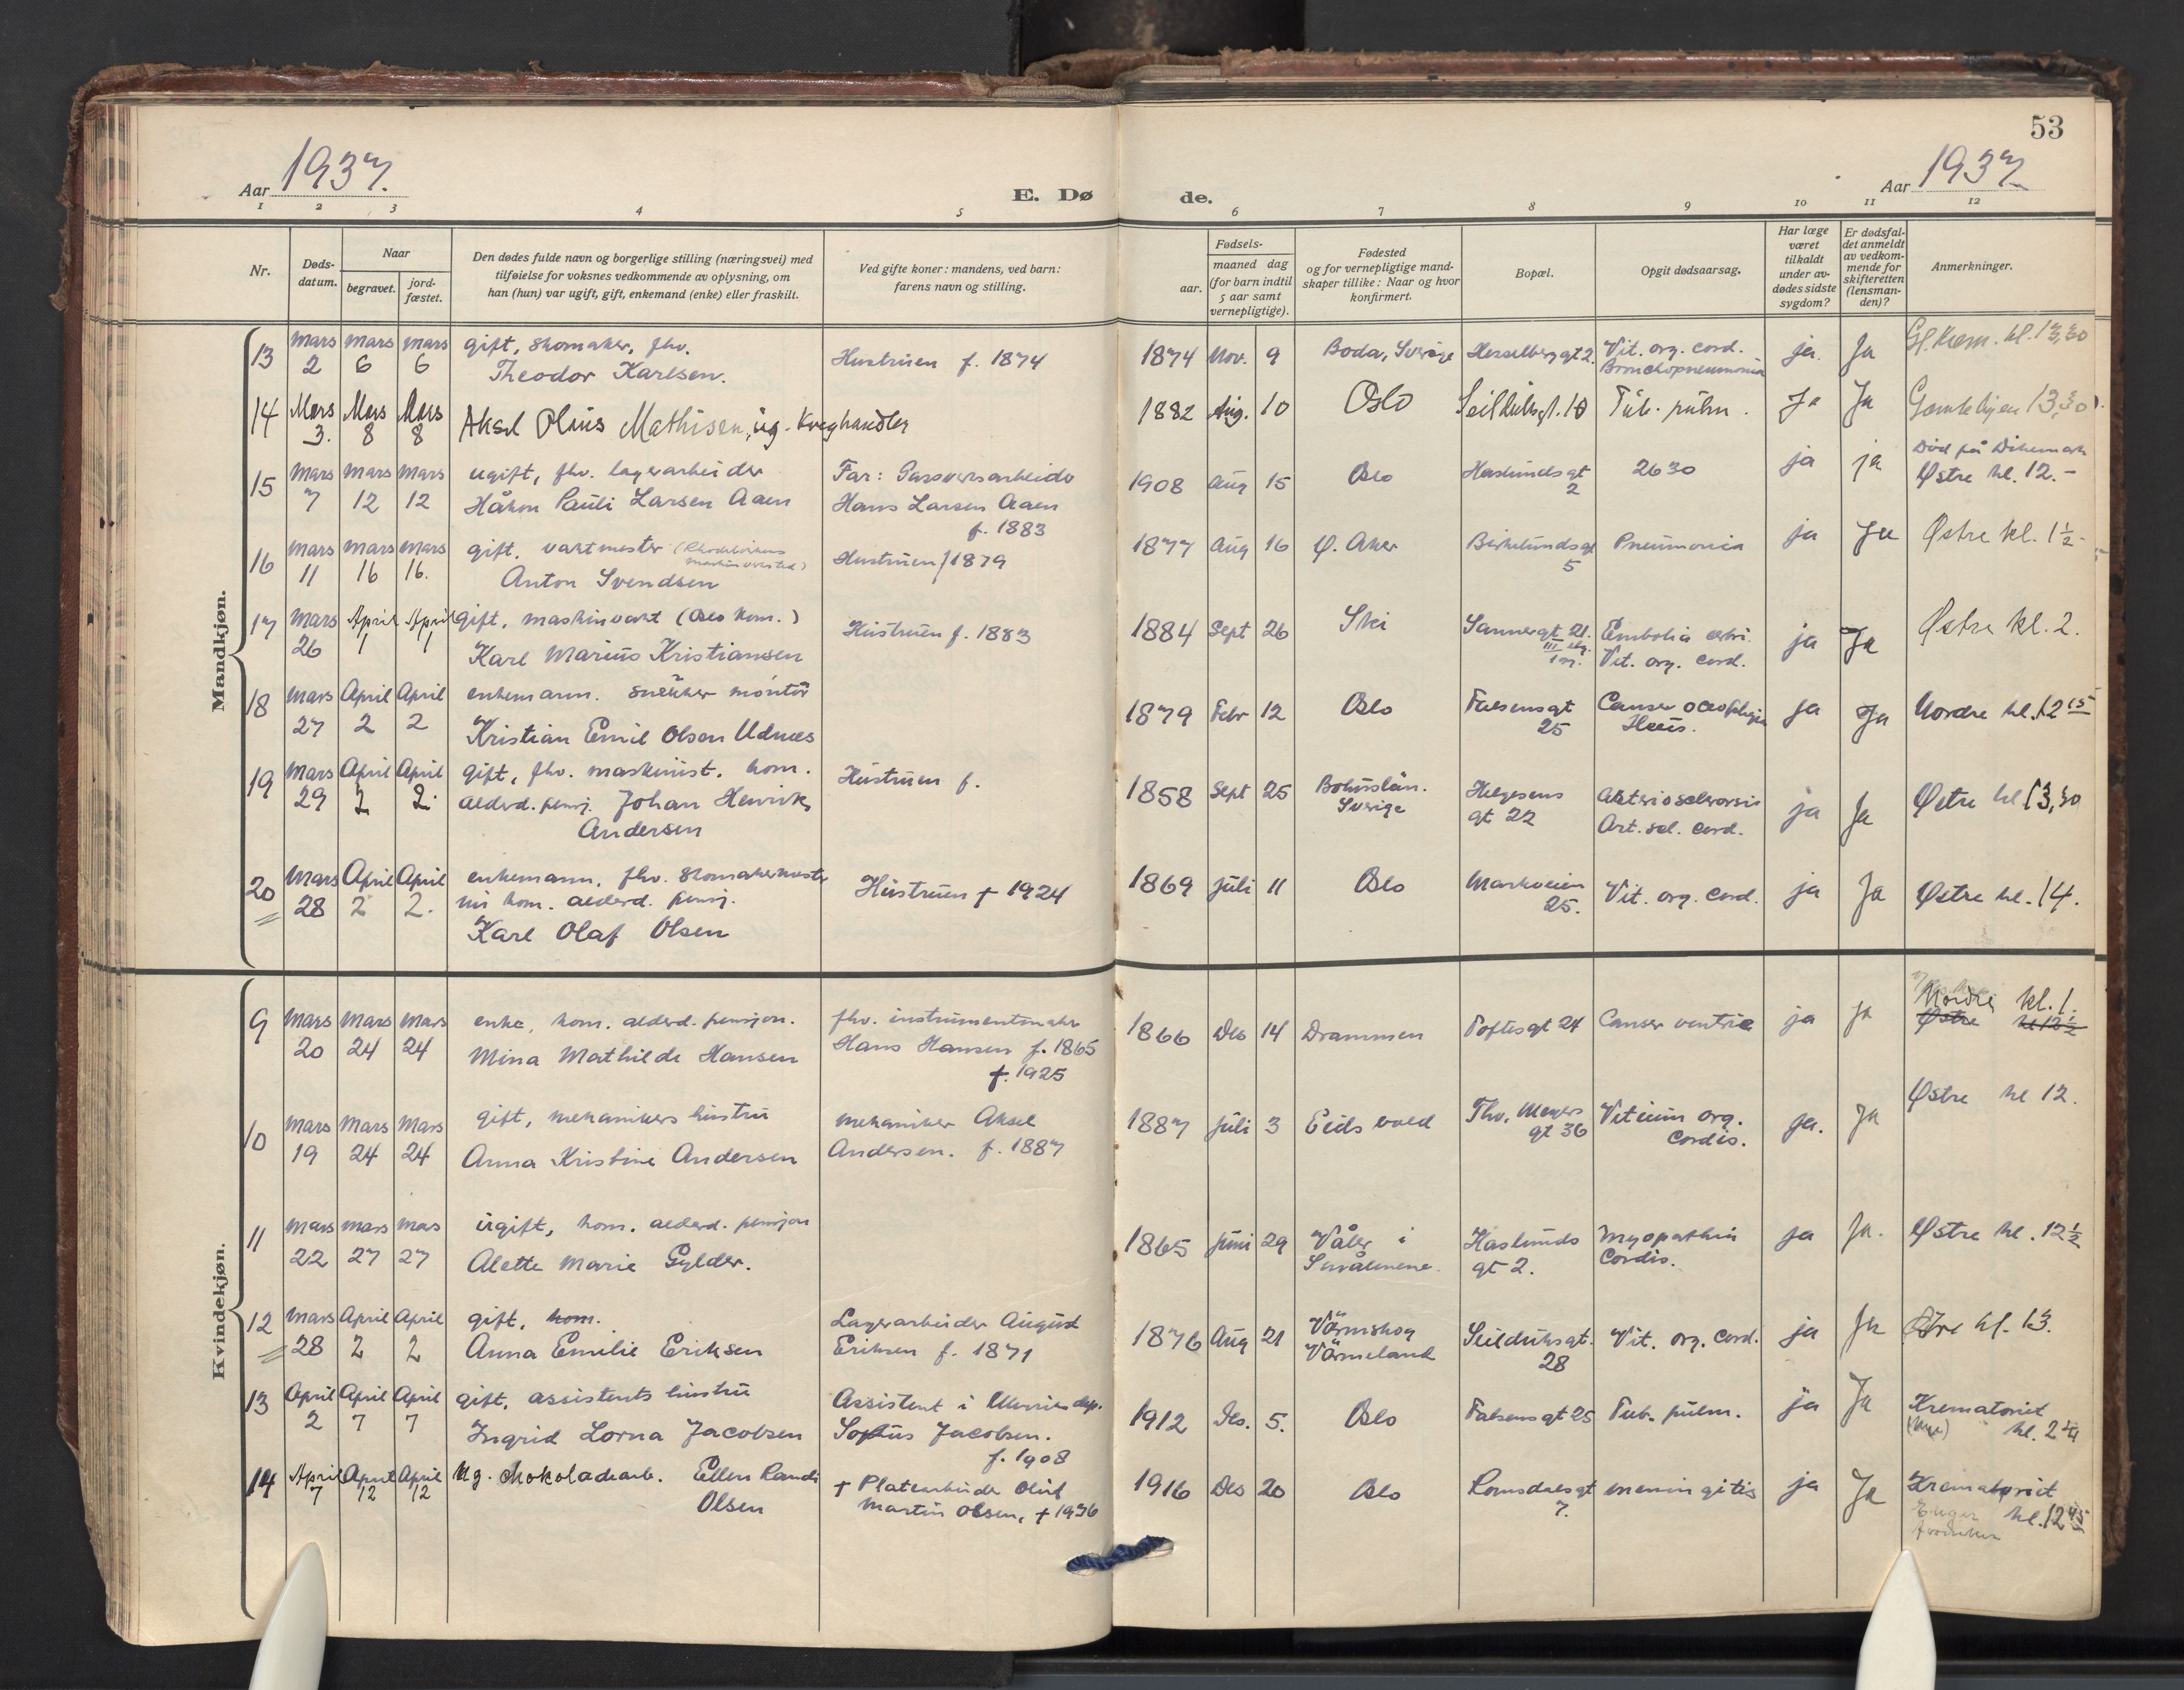 53
Aar 1937.
E. Dø
de.
Aar 1937
1 2 3 4 5 6 7 8 9 10 11 12
Nr.
Døds-
datum.
Naar
begravet.
jord-
fæstet.
Den dødes fulde navn og borgerlige stilling (næringsvei) med
tilføielse for voksnes vedkommende av oplysning, om
han (hun) var ugift, gift, enkemand (enke) eller fraskilt.
Ved gifte koner: mandens, ved barn:
farens navn og stilling.
Fødsels-
aar.
maaned dag
(for barn indtil
5 aar samt
vernepligtige).
Fødested
og for vernepligtige mand-
skaper tillike: Naar og hvor
konfirmert.
Bopæl.
Opgit dødsaarsag.
Har læge
været
tilkaldt
under av-
dødes sidste
sygdom?
Er dødsfal-
det anmeldt
av vedkom-
mende for
skifteretten
(lensman-
den)?
Anmerkninger.
Mandkjøn.
13 Mars 2 Mars 6 Mars 6 gift, skomaker, fhv.
Theodor Karlsen.
Hustruen f. 1874
1874 Nov. 9 Boda, Sverige Hesselberg gt 2. Vit. org. cord.
Bronchopneumonia
ja. Ja Gl. krem. kl. 13,30
14 Mars 3. Mars 8 Mars 8 Aksel Olius Mathisen, ug. Kveghandler
1882 Aug. 10 Oslo Seilduksgt. 10 Tub. pulm. Ja Ja Gamlebyen 13,30
15 Mars 7 Mars 12 Mars 12 ugift, fhv. lagerarbeider
Håkon Pauli Larsen Aaen
Far: Gassverksarbeider
Hans Larsen Aaen
f. 1883
1908 Aug 15 Oslo Haslunds gt
2
2630 ja ja Død på Dikemark
Østre kl. 12.-
16 Mars 11 Mars 16 Mars 16. gift. vaktmester
Anton Svendsen
Hustruen f 1879
1877 Aug 16 Ø. Aker Birkelunds gt
5
Pneumonia ja Ja Østre kl. 1 1/2
17 Mars 26 April 1 April 1 gift, maskinvakt (Oslo kom.)
Karl Marius Kristiansen
Hustruen f. 1883
1884 Sept 26 Ski Sannergt 21.
III etg.
Embolia cebri.
Vit. org. cord.
ja Ja Østre kl. 2.
18 Mars 27 April 2 April 2 enkemann. snekker montör
Kristian Emil Olsen Udnæs
1879 Febr 12 Oslo Falsensgt
25
Cancer
ja Ja Nordre kl. 12 15
19 Mars 29 April 2 April 2. gift, fhv. maskinist. kom.
alderd. pensj. Johan Henrik
Andersen
Hustruen f.
1858 Sept 25 Bohuslän.
Sverige
Helgesens
gt 22
Arteriosclerosis
Art. scl. cord.
ja Ja Østre kl 13,30
20 Mars 28 April 2 April 2. enkemann, fhv. skomakermester
nu kom. alderd. pensj.
Karl Olaf Olsen
Hustruen † 1924
1869 juli 11 Oslo Markveien
25.
Vit. org. cord. ja Ja Østre kl. 14.
Kvindekjøn.
9 Mars 20 Mars 24 Mars 24 enke, kom. alderd. pensjon.
Mina Mathilde Hansen
fhv. instrumentmaker
Hans Hansen f. 1865
†. 1925
1866 Des 14 Drammen Toftesgt 24 Cancer ventric ja ja Nordre kl. 1.
Østre kl 12 1/2
10 Mars 19 Mars 24 Mars 24 gift, mekanikers hustru
Anna Kristine Andersen
mekaniker Aksel
Andersen. f. 1887
1887 juli 3 Eidsvold Thv. Meyers
gt 36
Vitium org.
Cordis.
ja. Ja Østre kl 12.
11 Mars 22 Mars 27 Mars 27 ugift, kom. alderd. pensjon
Alette Marie Gylder.
1865 juni 29 Våler i
Småalenene.
Haslunds
gt 2.
Myopathia
Cordis.
ja Ja. Østre kl. 12 1/2
12 Mars 28 April 2 April 2 gift, kom.
Anna Emilie Eriksen
Lagerarbeider August
Eriksen f. 1871
1876 Aug 21 Värmskog
Värmeland
Seilduksgt.
28
Vit. org. cord. ja Ja Østre kl. 13.
13 April 2 April 7 April 7 gift, assistents hustru
Ingrid Lorna Jacobsen
Assistent i
Sophus Jacobsen.
f. 1908
1912 Des. 5. Oslo Falsensgt 25 Tub. pulm. ja Ja Krematoriet
(Nye) kl. 2 1/4
14 April 7 April 12 April 12 Ug. chokoladearb. Ellen Randi
Olsen
† Platearbeider Oluf
Martin Olsen, † 1936
1916 Des 20 Oslo Romsdalsgt
7.
meningitis ja Ja Krematoriet
kl. 12 45